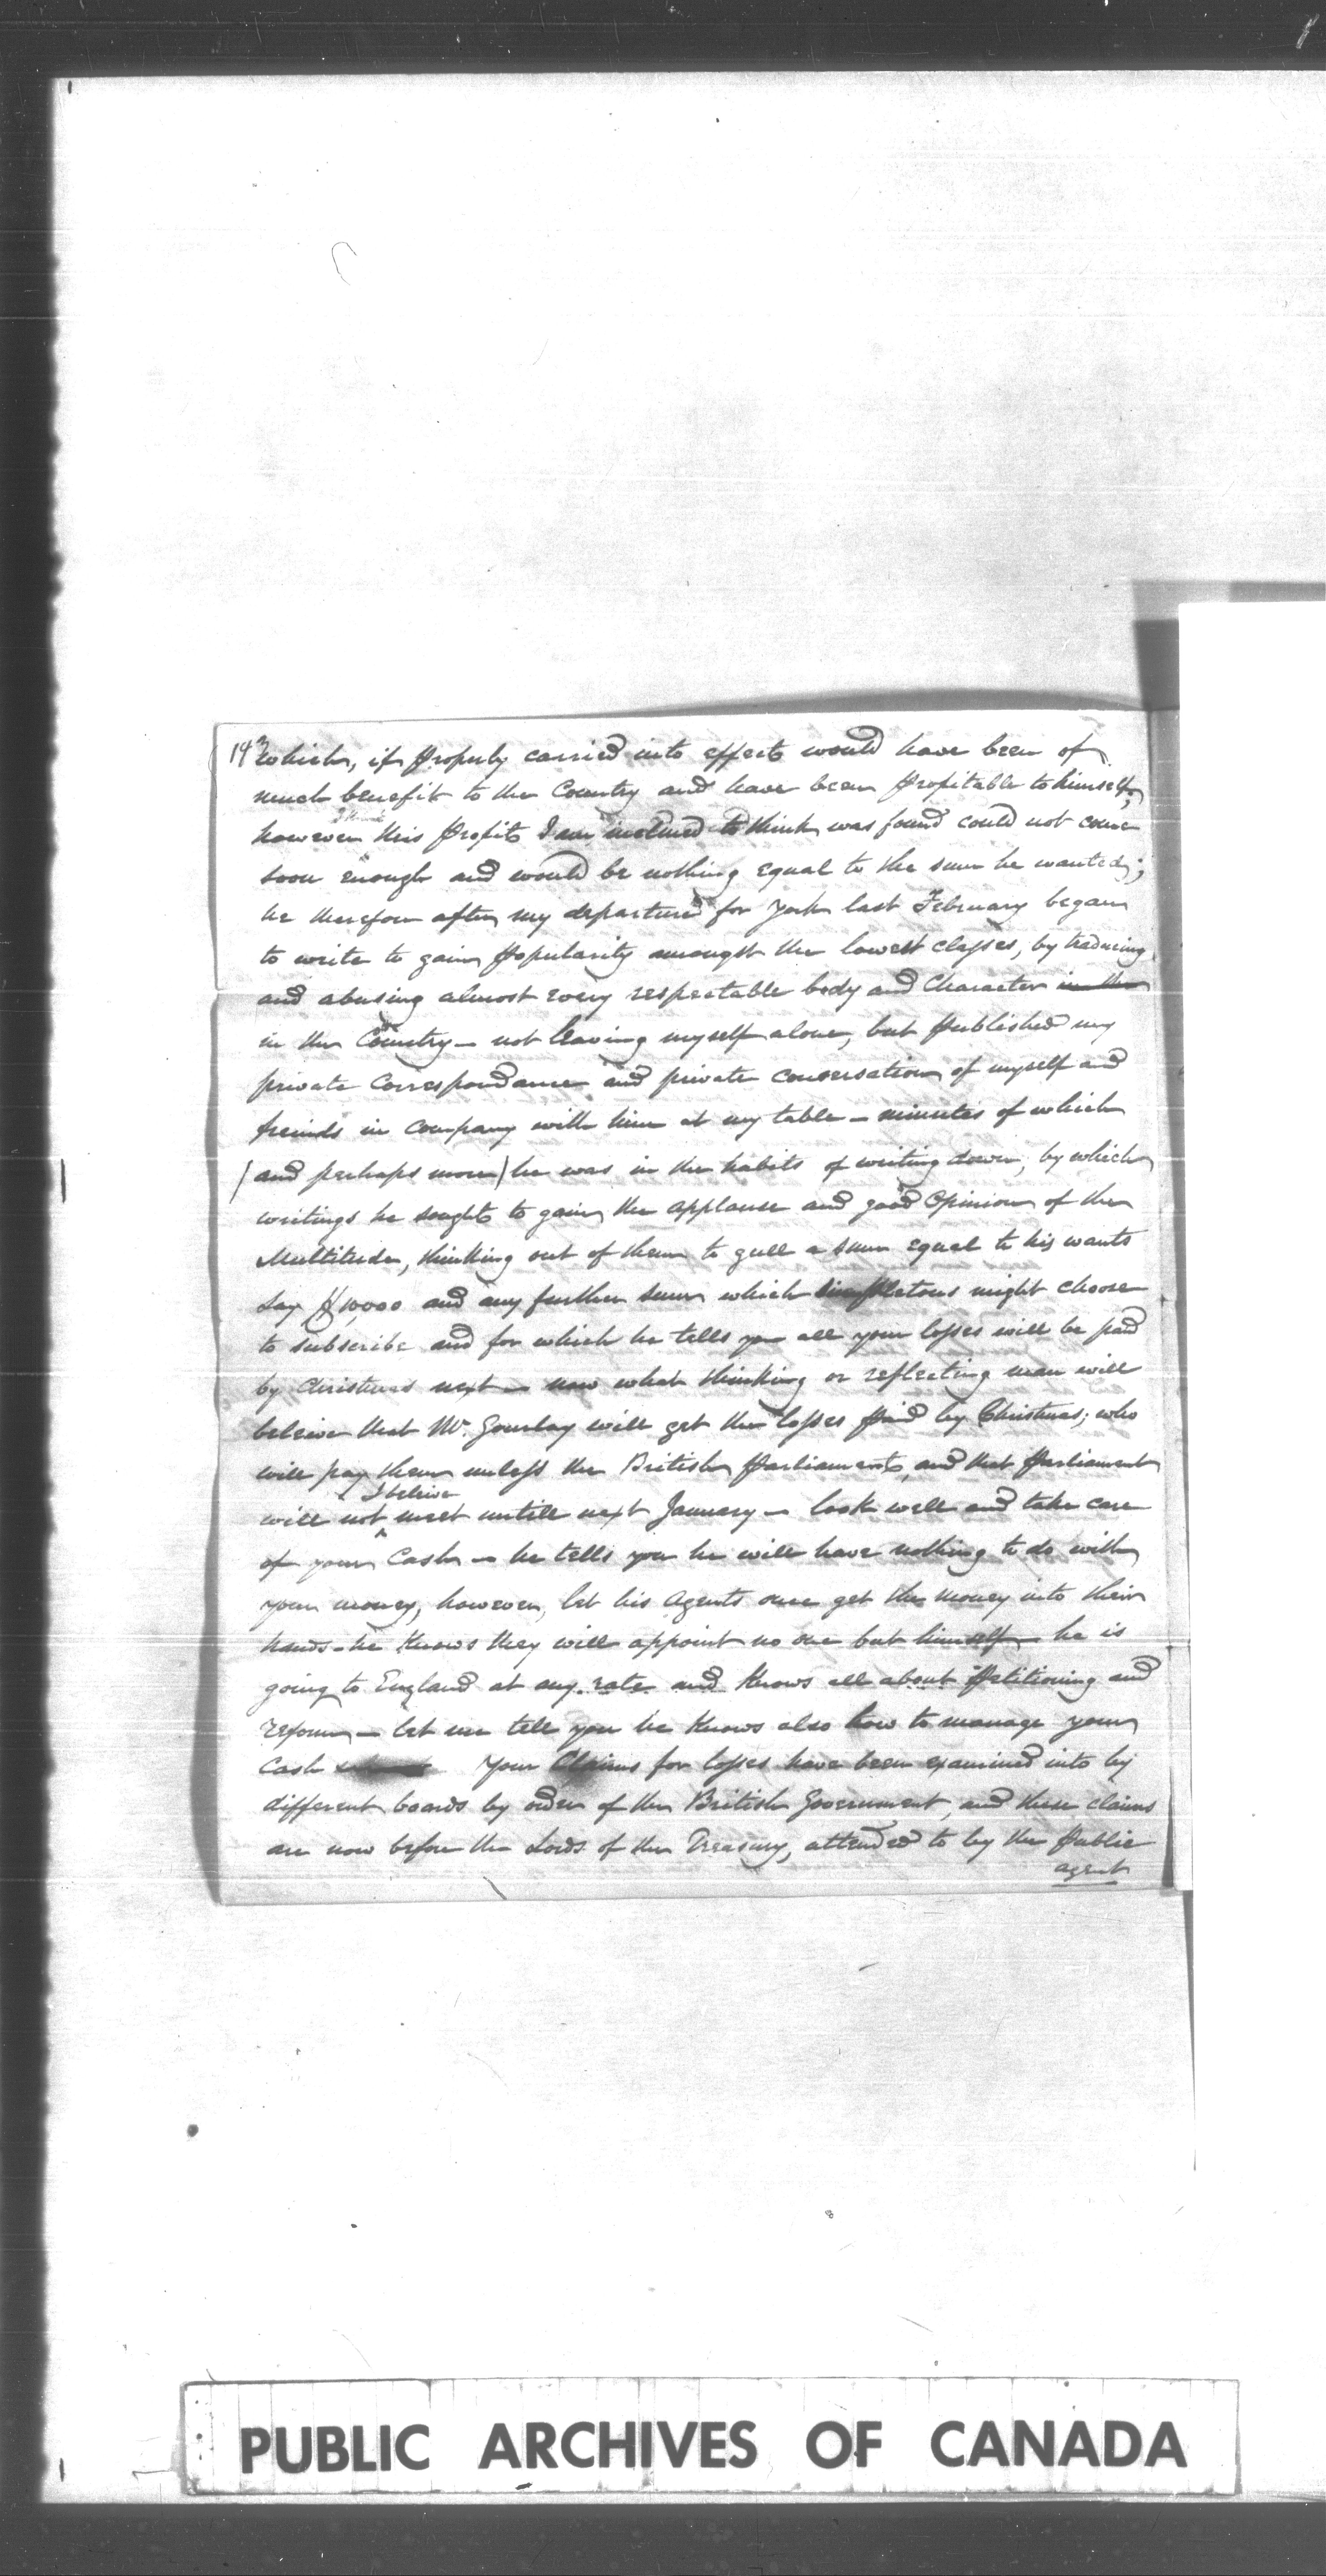 14 which, if properly carried into effect would have been of
much benefit to the Country and have been profitable to himself,
however this profit I am inclined to think was found could not come
soon enough and would be nothing equal to the sum he wanted;
he therefore after my departure for York last February began
to write to gain popularity amongst the lowest classes, by traducing
and abusing almost every respectable body and Character in the
in the Country – not leaving myself alone, but published my
private Correspondance and private conversation of myself and
freinds in company with him at my table – minutes of which
(and perhaps more) he was in the habits of writing down, by which
writings he sought to gain the applause and good Opinion of the
Multitude, thinking out of them to gull a sum equal to his wants
say $10,000 and any further sum which simpletons might choose
to subscribe and for which he tells you all your losses will be paid
by Christmas next – now what thinking or reflecting man will
beleive that Mr. Gourlay will get the losses paid by Christmas; who
will pay them unless the British Parliament, and that Parliament
I beleive
will not meet untill next January – look well and take care
of your Cash – he tells you he will have nothing to do with
your money, however, let his Agents once get the money into their
hands – he knows they will appoint no one but himself – he is
going to England at any rate and knows all about Petitioning and
reform – let me tell you he knows also how to manage your
Cash Your Claims for losses have been examined into by
different boards by order of the British Government, and these claims
are now before the Lords of the Treasury, attended to by the Public
agent
PUBLIC ARCHIVES OF CANADA